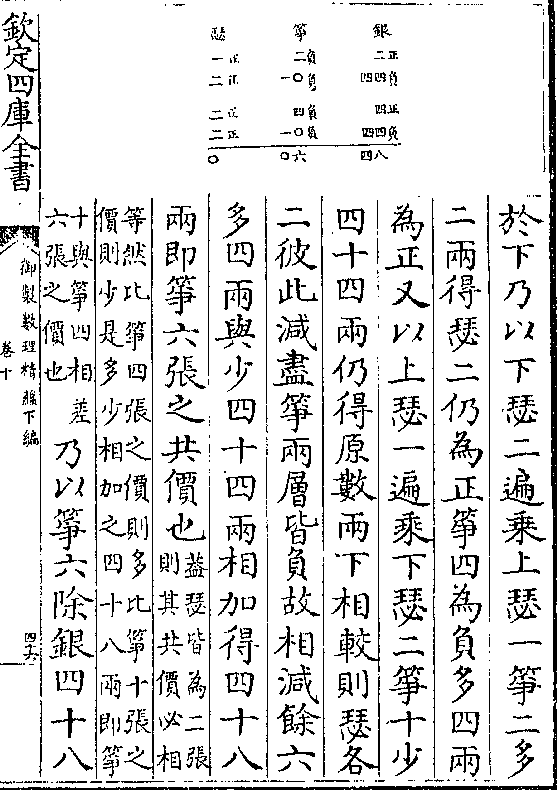 瑟 箏 銀
一正 二負 二正
二正 一〇負 四四負
二正 四負 四正
二正 一〇負 四四負
〇 〇六 四八
於下乃以下瑟二遍乗上瑟一箏二多
二兩得瑟二仍為正箏四為負多四兩
為正又以上瑟一遍乗下瑟二箏十少
四十四兩仍得原數兩下相較則瑟各
二彼此減盡箏兩層皆負故相減餘六
多四兩與少四十四兩相加得四十八
兩即箏六張之共價也
蓋瑟皆為二張
則其共價必相
等然比箏四張之價則多比箏十張之
價則少是多少相加之四十八兩即箏
十與箏四相差
六張之價也
乃以箏六除銀四十八
欽定四庫全書
御製數理精蘊下編
卷十